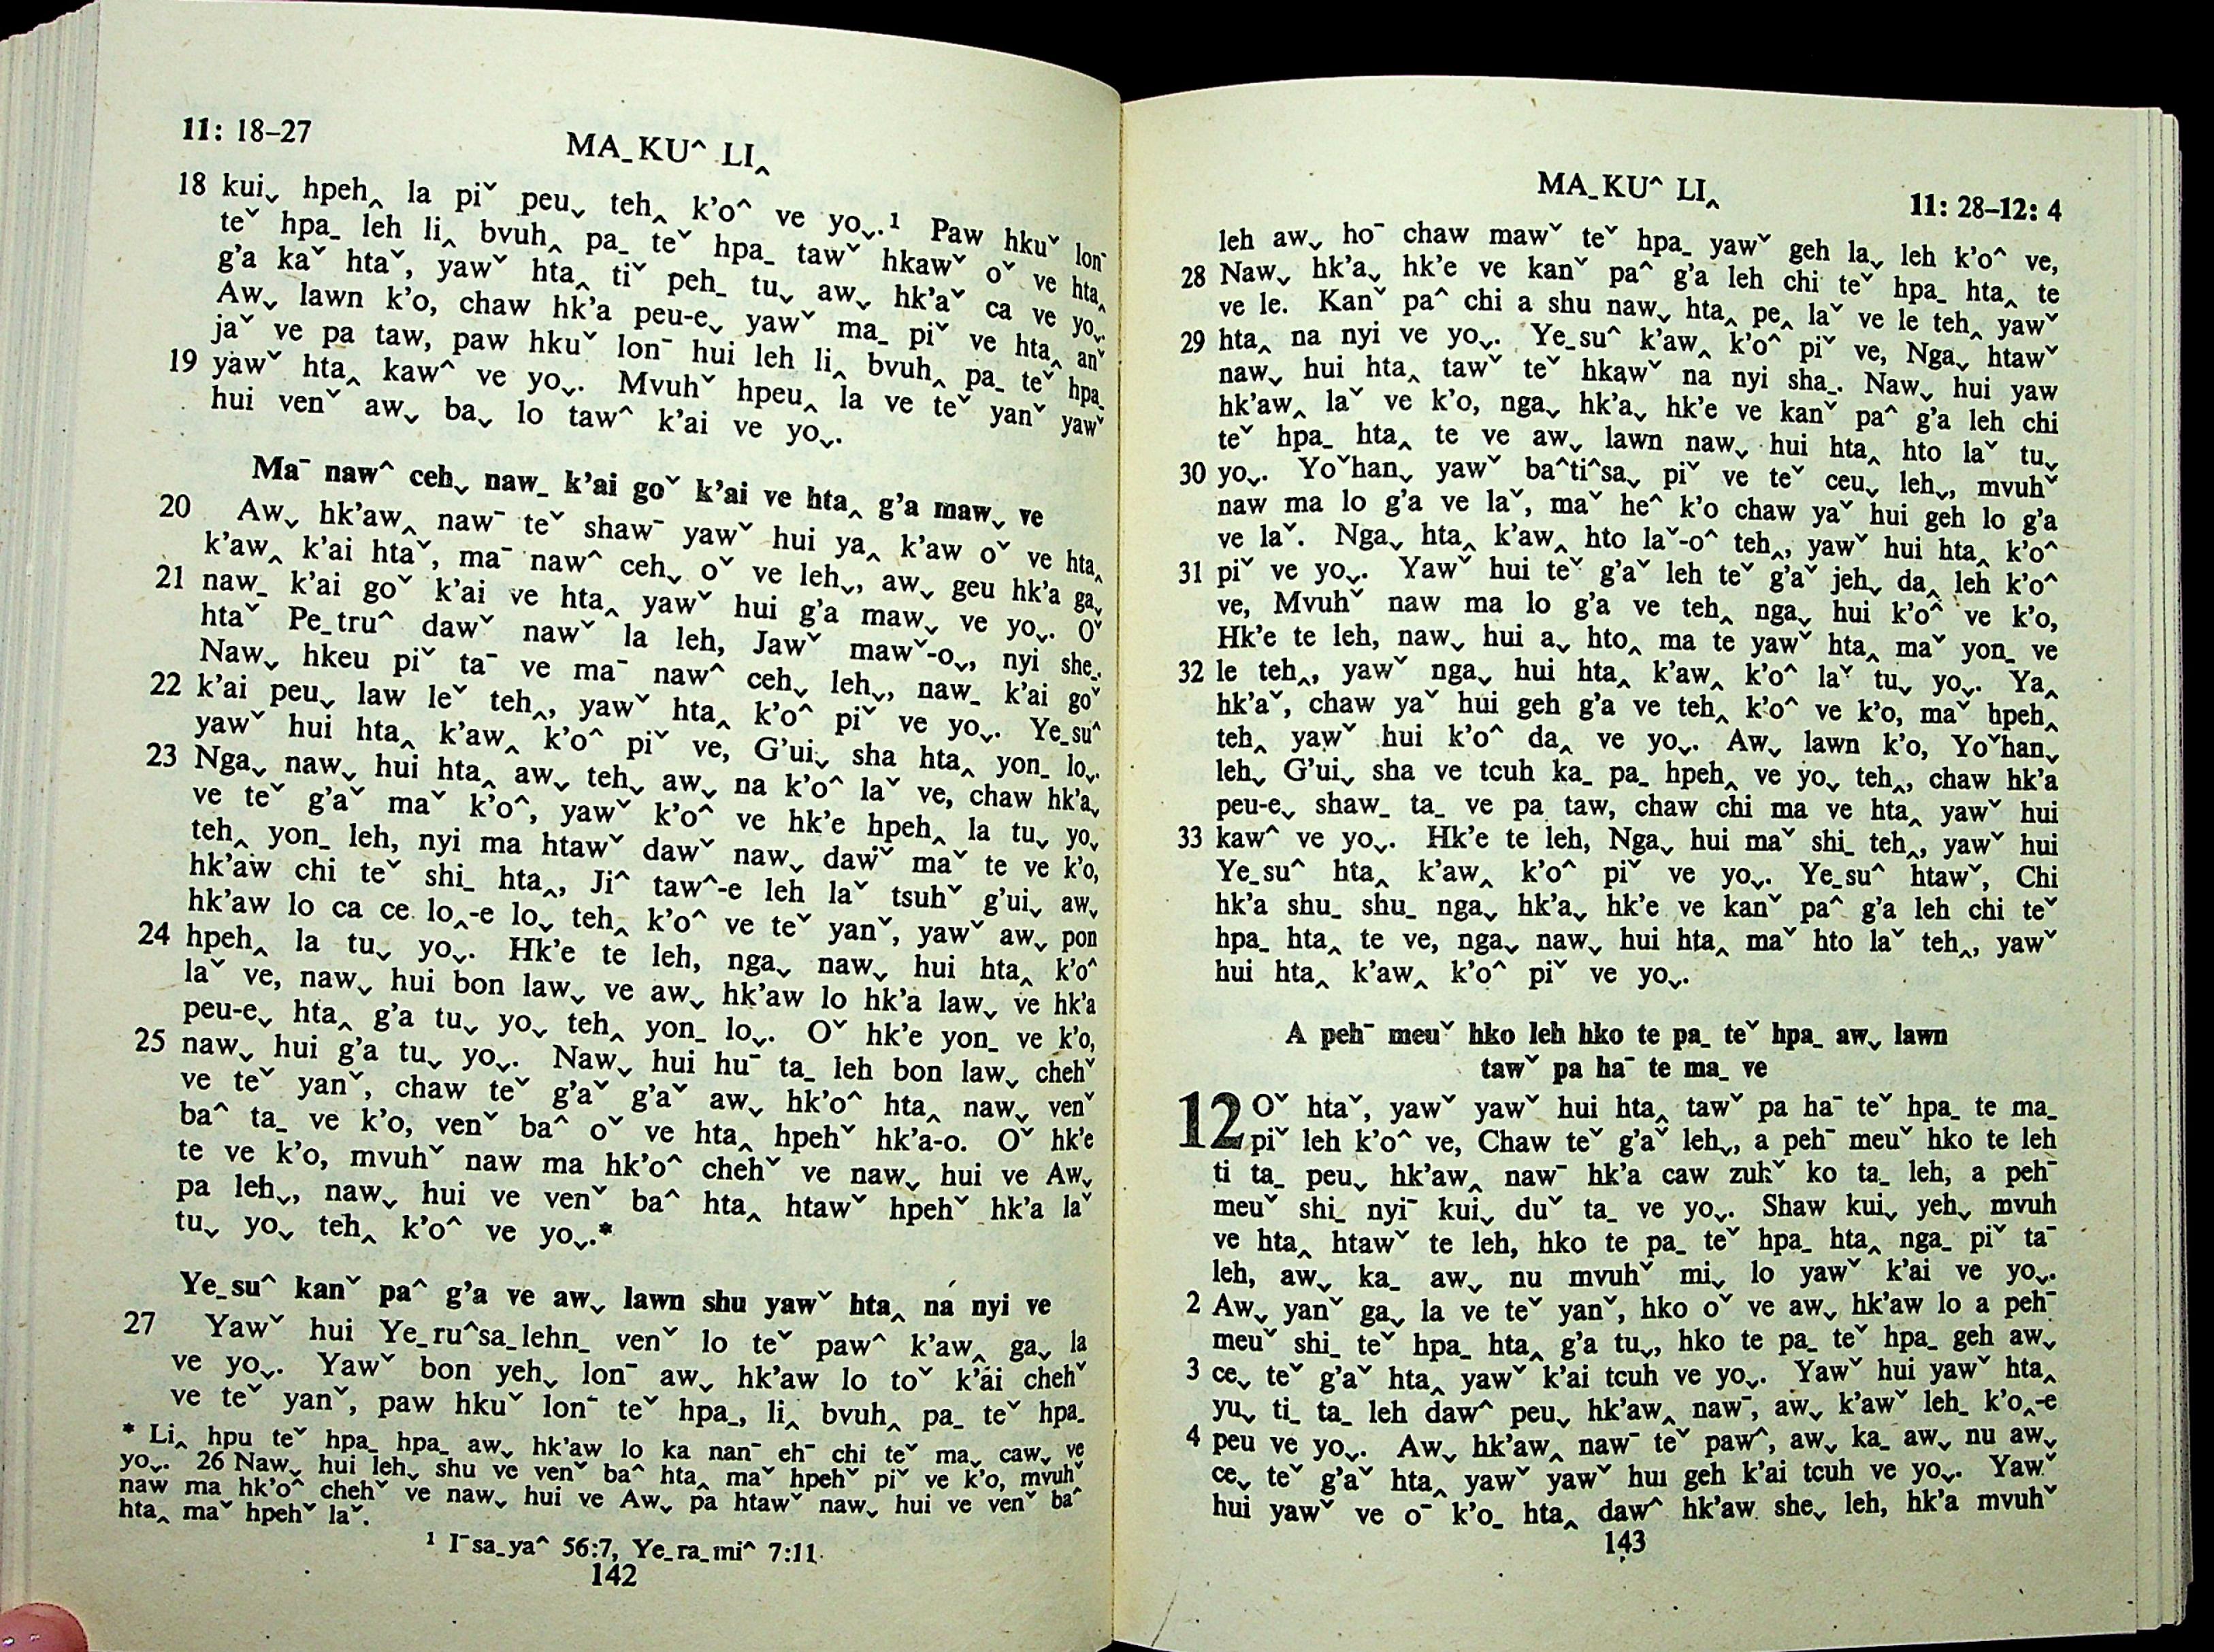 11: 18–27
MA_KU^ LI‸
18 kuiˬ hpeh‸ la piˇ peuˬ teh‸ k’o^ ve yoˬ.¹ Paw hkuˇ lon¯
teˇ hpa_ leh li‸ bvuh‸ pa_ teˇ hpa_ tawˇ hkawˇ oˇ ve hta‸
g’a kaˇ htaˇ, yawˇ hta‸ tiˇ peh_ tuˬ awˬ hk’aˇ ca ve yoˬ.
Awˬ lawn k’o, chaw hk’a peu-eˬ yawˇ ma_ piˇ ve hta‸ anˇ
jaˇ ve pa taw, paw hkuˇ lon¯ hui leh li‸ bvuh‸ pa_ teˇ hpa_
19 yawˇ hta‸ kaw^ ve yoˬ. Mvuhˇ hpeu‸ la ve teˇ yanˇ yawˇ
hui venˇ awˬ baˬ lo taw^ k’ai ve yoˬ.
Ma¯ naw^ cehˬ naw_ k’ai goˇ k’ai ve hta‸ g’a mawˬ ve
20 Awˬ hk’aw‸ naw¯ teˇ shaw¯ yawˇ hui ya‸ k’aw oˇ ve hta‸
k’aw‸ k’ai htaˇ, ma¯ naw^ cehˬ oˇ ve lehˬ, awˬ geu hk’a gaˬ
21 naw_ k’ai goˇ k’ai ve hta‸ yawˇ hui g’a mawˬ ve yoˬ. Oˇ
htaˇ Pe_tru^ dawˇ nawˇ la leh, Jawˇ mawˇ-oˬ, nyi she.
Nawˬ hkeu piˇ ta¯ ve ma¯ naw^ cehˬ lehˬ, naw_ k’ai goˇ
22 k’ai peuˬ law leˇ teh‸, yawˇ hta‸ k’o^ piˇ ve yoˬ. Ye_su^
yawˇ hui hta‸ k’aw‸ k’o^ piˇ ve, G’uiˬ sha hta‸ yon_ loˬ.
23 Ngaˬ nawˬ hui hta‸ awˬ teh‸ awˬ na k’o^ laˇ ve, chaw hk’aˬ
ve teˇ g’aˇ maˇ k’o^, yawˇ k’o^ ve hk’e hpeh‸ la tuˬ yoˬ
teh‸ yon_ leh, nyi ma htawˇ dawˇ nawˬ dawˇ maˇ te ve k’o,
hk’aw chi teˇ shi_ hta‸, Ji^ taw^-e leh laˇ tsuhˇ g’uiˬ awˬ
hk’aw lo ca ce lo‸-e loˬ teh‸ k’o^ ve teˇ yanˇ, yawˇ awˬ pon
24 hpeh‸ la tuˬ yoˬ. Hk’e te leh, ngaˬ nawˬ hui hta‸ k’o^
laˇ ve, nawˬ hui bon lawˬ ve awˬ hk’aw lo hk’a lawˬ ve hk’a
peu-eˬ hta‸ g’a tuˬ yoˬ teh‸ yon_ loˬ. Oˇ hk’e yon_ ve k’o,
25 nawˬ hui g’a tuˬ yoˬ. Nawˬ hui hu¯ ta_ leh bon lawˬ chehˇ
ve teˇ yanˇ, chaw teˇ g’aˇ g’aˇ awˬ hk’o^ hta‸ nawˬ venˇ
ba^ ta_ ve k’o, venˇ ba^ oˇ ve hta‸ hpehˇ hk’a-o. Oˇ hk’e
te ve k’o, mvuhˇ naw ma hk’o^ chehˇ ve nawˬ hui ve Awˬ
pa lehˬ, nawˬ hui ve venˇ ba^ hta‸ htawˇ hpehˇ hk’a laˇ
tuˬ yoˬ teh‸ k’o^ ve yoˬ.*
Ye_su^ kanˇ pa^ g’a ve awˬ lawn shu yawˇ hta‸ na nyi ve
27 Yawˇ hui Ye_ru^sa_lehn_ venˇ lo teˇ paw^ k’aw‸ gaˬ la
ve yoˬ. Yawˇ bon yehˬ lon¯ awˬ hk’aw lo toˇ k’ai chehˇ
ve teˇ yanˇ, paw hkuˇ lon¯ teˇ hpa_, li‸ bvuh‸ pa_ teˇ hpa_
* Li‸ hpu teˇ hpa_ hpa_ awˬ hk’aw lo ka nan¯ eh¯ chi teˇ ma‸ cawˬ ve
yoˬ. 26 Nawˬ hui lehˬ shu ve venˇ ba^ hta‸ maˇ hpehˇ piˇ ve k’o, mvuhˇ
naw ma hk’o^ chehˇ ve nawˬ hui ve Awˬ pa htawˇ nawˬ hui ve venˇ ba^
hta‸ maˇ hpehˇ laˇ.
¹ I¯sa_ya^ 56:7, Ye_ra_mi^ 7:11.
142
MA_KU^ LI‸
11: 28–12: 4
leh awˬ ho¯ chaw mawˇ teˇ hpa_ yawˇ geh laˬ leh k’o^ ve,
28 Nawˬ hk’aˬ hk’e ve kanˇ pa^ g’a leh chi teˇ hpa_ hta‸ te
ve le. Kanˇ pa^ chi a shu nawˬ hta‸ pe‸ laˇ ve le teh‸ yawˇ
29 hta‸ na nyi ve yoˬ. Ye_su^ k’aw‸ k’o^ piˇ ve, Ngaˬ htawˇ
nawˬ hui hta‸ tawˇ teˇ hkawˇ na nyi sha_. Nawˬ hui yaw
hk’aw‸ laˇ ve k’o, ngaˬ hk’aˬ hk’e ve kanˇ pa^ g’a leh chi
teˇ hpa_ hta‸ te ve awˬ lawn nawˬ hui hta‸ hto laˇ tuˬ
30 yoˬ. Yoˇhanˬ yawˇ ba^ti^saˬ piˇ ve teˇ ceuˬ lehˬ, mvuhˇ
naw ma lo g’a ve laˇ, maˇ he^ k’o chaw yaˇ hui geh lo g’a
ve laˇ. Ngaˬ hta‸ k’aw‸ hto laˇ-o^ teh‸, yawˇ hui hta‸ k’o^
31 piˇ ve yoˬ. Yawˇ hui teˇ g’aˇ leh teˇ g’aˇ jehˬ da‸ leh k’o^
ve, Mvuhˇ naw ma lo g’a ve teh‸ ngaˬ hui k’o^ ve k’o,
Hk’e te leh, nawˬ hui aˬ hto‸ ma te yawˇ hta‸ maˇ yon_ ve
32 le teh‸, yawˇ ngaˬ hui hta‸ k’aw‸ k’o^ laˇ tuˬ yoˬ. Ya‸
hk’aˇ, chaw yaˇ hui geh g’a ve teh‸ k’o^ ve k’o, maˇ hpeh‸
teh‸ yawˇ hui k’o^ da‸ ve yoˬ. Awˬ lawn k’o, Yoˇhanˬ
lehˬ G’uiˬ sha ve tcuh ka_ pa_ hpeh‸ ve yoˬ teh‸, chaw hk’a
peu-eˬ shaw_ ta_ ve pa taw, chaw chi ma ve hta‸ yawˇ hui
33 kaw^ ve yoˬ. Hk’e te leh, Ngaˬ hui maˇ shi_ teh‸, yawˇ hui
Ye_su^ hta‸ k’aw‸ k’o^ piˇ ve yoˬ. Ye_su^ htawˇ, Chi
hk’a shu_ shu_ ngaˬ hk’aˬ hk’e ve kanˇ pa^ g’a leh chi teˇ
hpa_ hta‸ te ve, ngaˬ nawˬ hui hta‸ maˇ hto laˇ teh‸, yawˇ
hui hta‸ k’aw‸ k’o^ piˇ ve yoˬ.
A peh¯ meuˇ hko leh hko te pa_ teˇ hpa_ awˬ lawn
tawˇ pa ha¯ te ma_ ve
12 Oˇ htaˇ, yawˇ yawˇ hui hta‸ tawˇ pa ha¯ teˇ hpa_ te ma_
piˇ leh k’o^ ve, Chaw teˇ g’aˇ lehˬ, a peh¯ meuˇ hko te leh
ti ta_ peuˬ hk’aw‸ naw¯ hk’a caw zuhˇ ko ta_ leh, a peh¯
meuˇ shi_ nyi¯ kuiˬ duˇ ta_ ve yoˬ. Shaw kuiˬ yehˬ mvuh
ve hta‸ htawˇ te leh, hko te pa_ teˇ hpa_ hta‸ nga_ piˇ ta¯
leh, awˬ ka_ awˬ nu mvuhˇ miˬ lo yawˇ k’ai ve yoˬ.
2 Awˬ yanˇ gaˬ la ve teˇ yanˇ, hko oˇ ve awˬ hk’aw lo a peh¯
meuˇ shi_ teˇ hpa_ hta‸ g’a tuˬ, hko te pa_ teˇ hpa_ geh awˬ
3 ceˬ teˇ g’aˇ hta‸ yawˇ k’ai tcuh ve yoˬ. Yawˇ hui yawˇ hta‸
yuˬ ti_ ta_ leh daw^ peuˬ hk’aw‸ naw¯, awˬ k’awˇ leh_ k’o‸-e
4 peu ve yoˬ. Awˬ hk’aw‸ naw¯ teˇ paw^, awˬ ka_ awˬ nu awˬ
ceˬ teˇ g’aˇ hta‸ yawˇ yawˇ hui geh k’ai tcuh ve yoˬ. Yawˇ
hui yawˇ ve o¯ k’o_ hta‸ daw^ hk’aw sheˬ leh, hk’a mvuhˇ
143